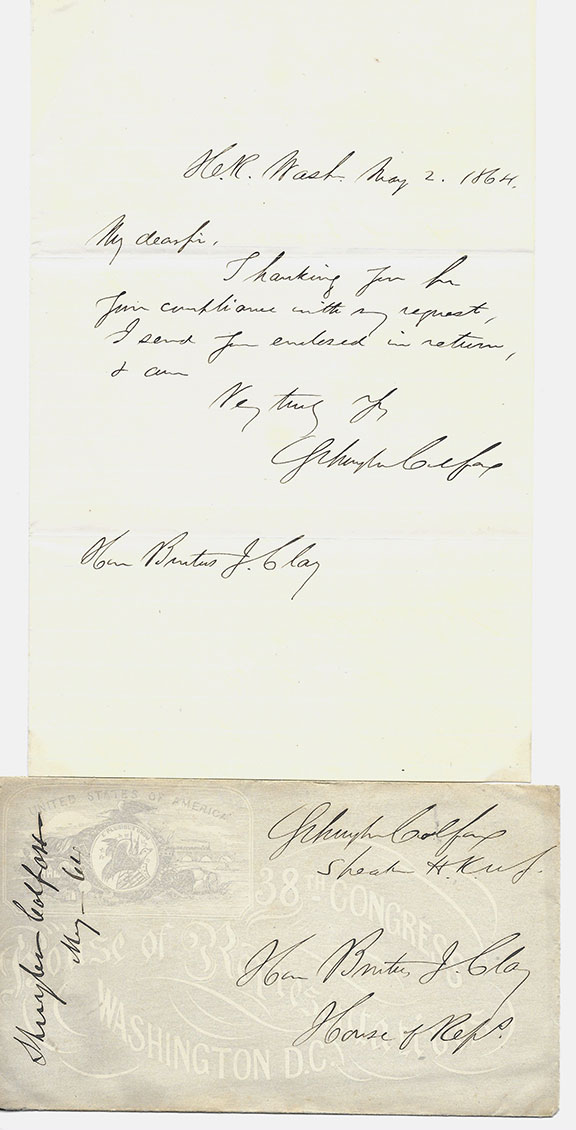 H.R. Wash. May 2. 1864.
My dear sir,
Thanking you for
your compliance with my request,
I send you enclosed in return,
& am
Very truly yrs
Schuyler Colfax
Hon Brutus J. Clay
UNITED STATES OF AMERICA
Schuyler Colfax
Speaker H.
38TH CONGRESS
House of Representatives
WASHINGTON D.C.
Hon Brutus J. Clay
House of Reps.
Schuyler Colfax
May